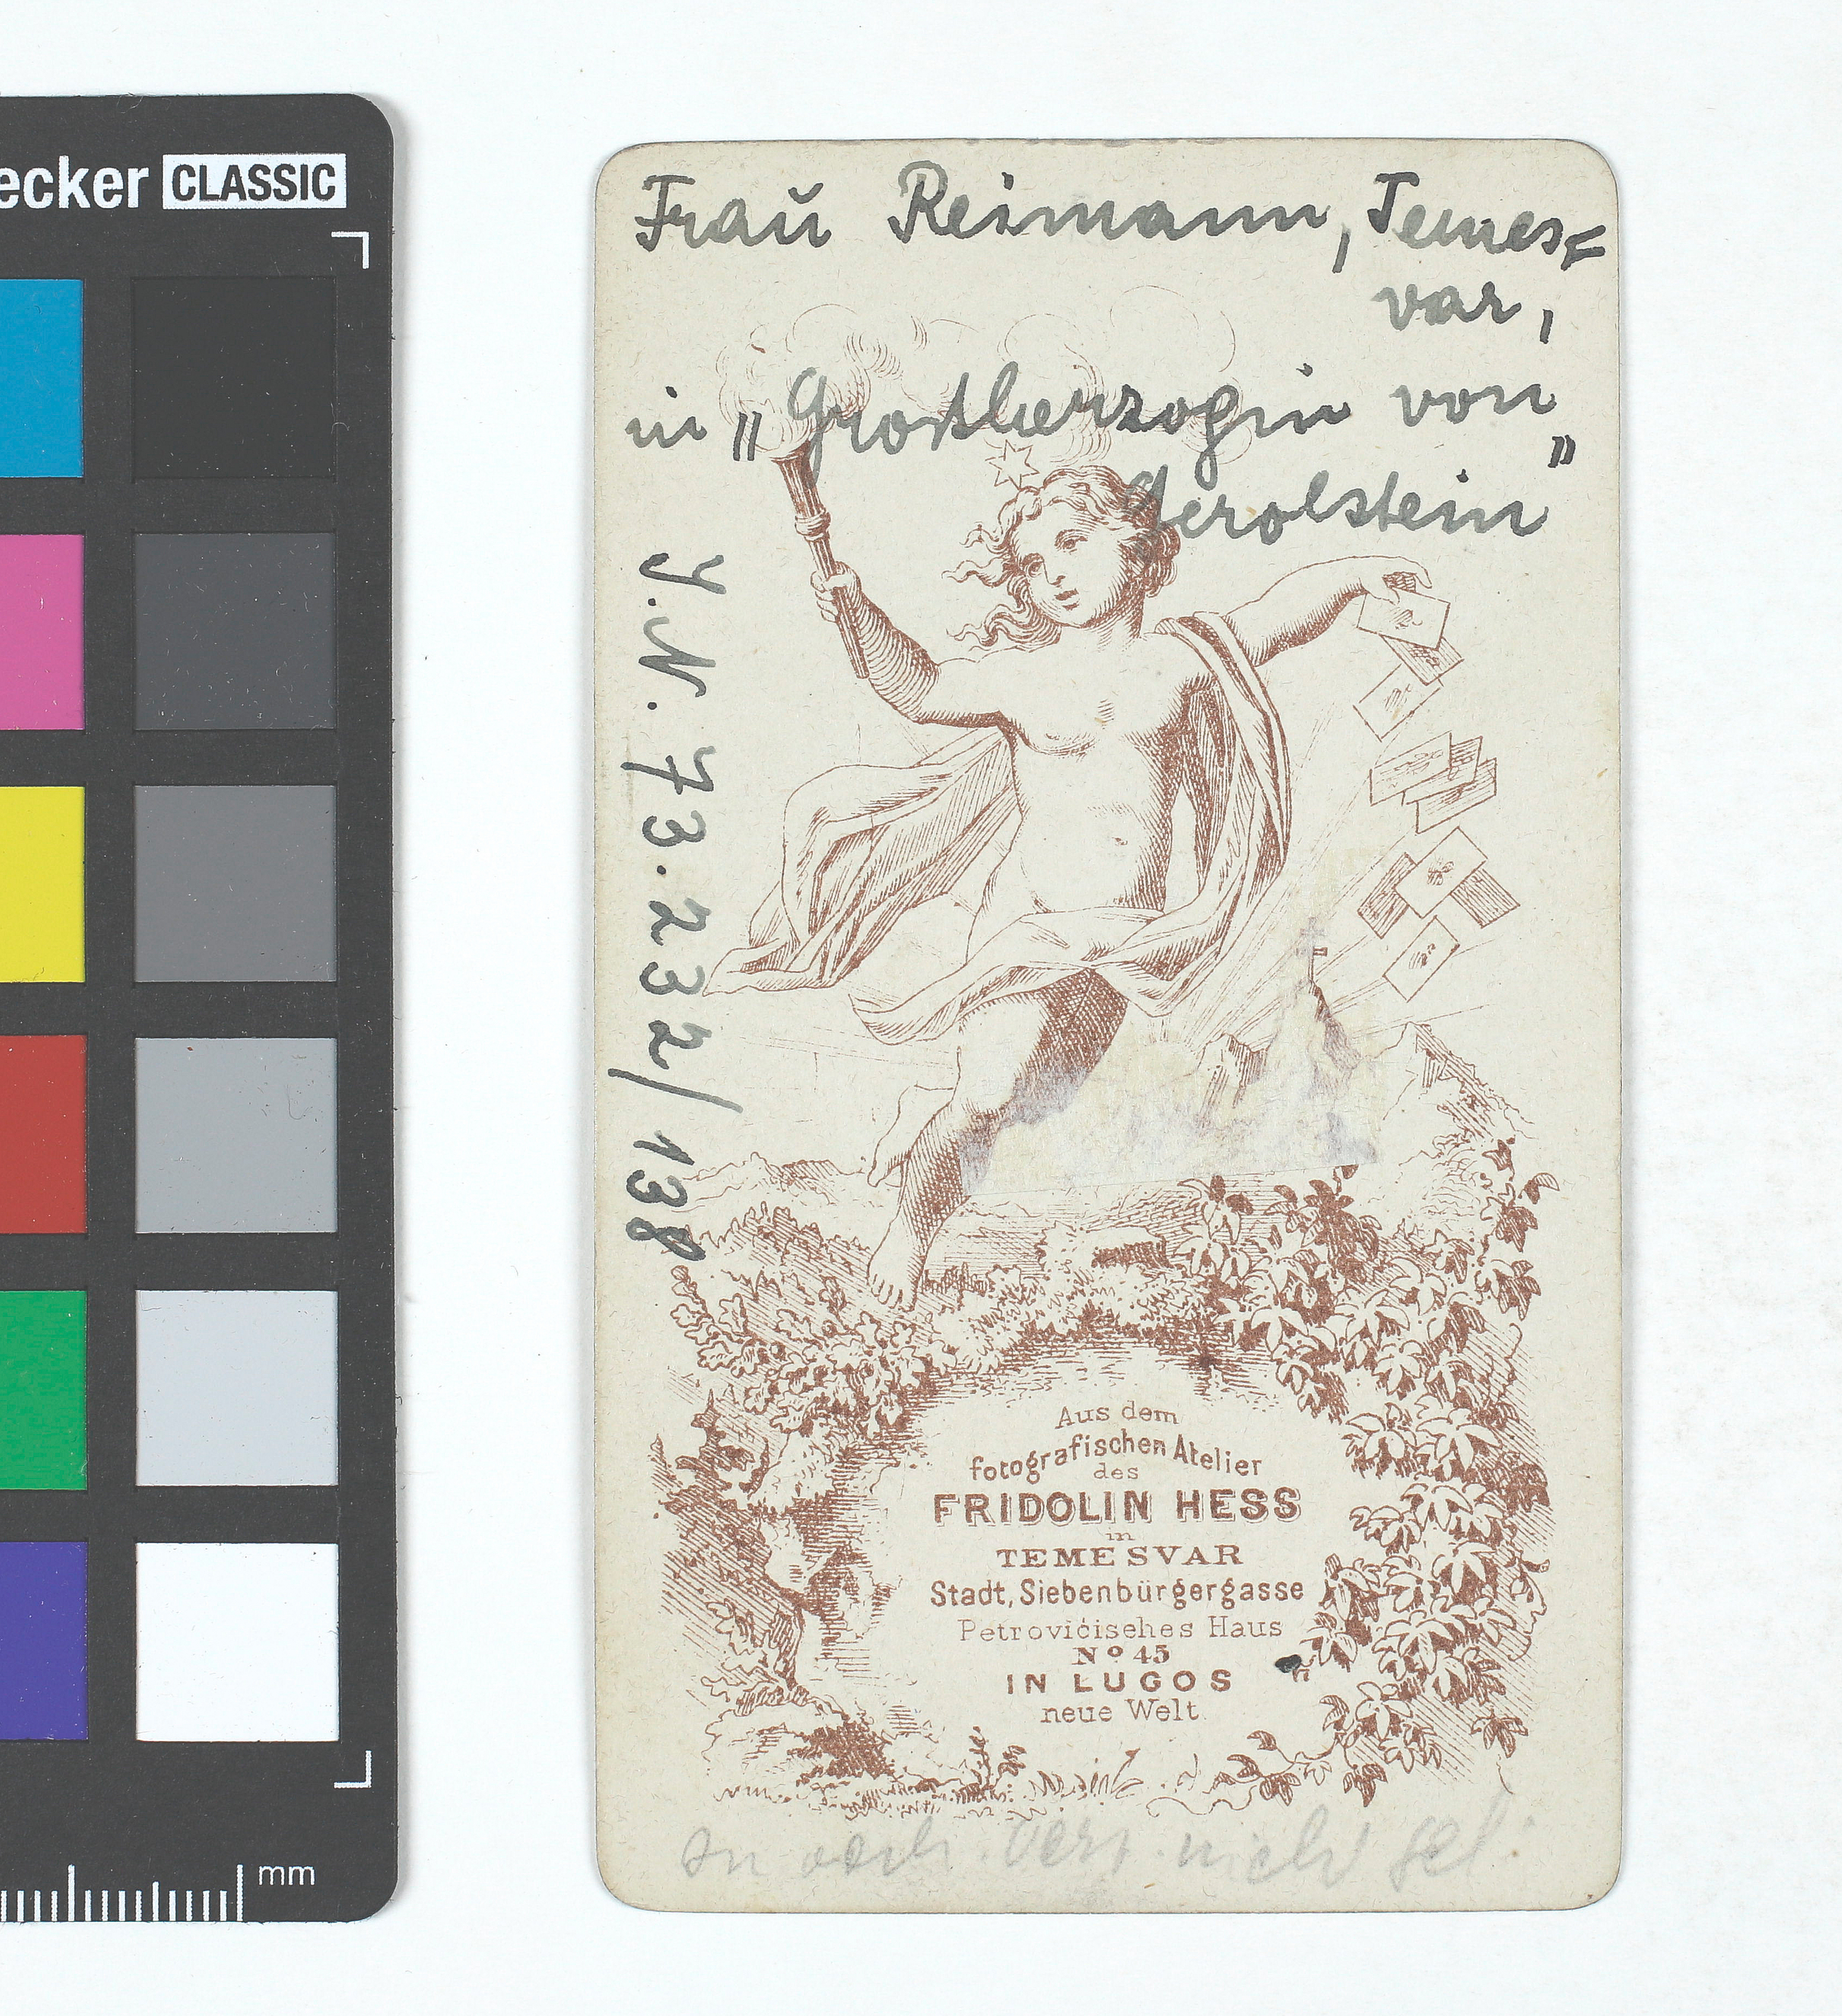 ecker CLASSIC
Fraŭ Reimann, Temes=
var,
in „Großherzogin von
Gerolstein"
J.N. 73.232/138
Aus dem
fotografischen Atelier
des
FRIDOLIN HESS
in
TEMESVAR
Stadt, Siebenbürgergasse
Petrovićisches Haus
No 45
IN LUGOS
neue Welt
nicht
mm